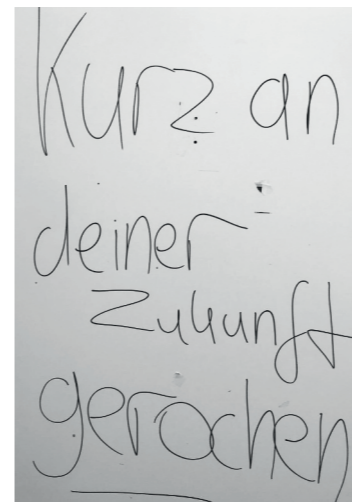 Kurz an
deiner
Zukunft
gerochen